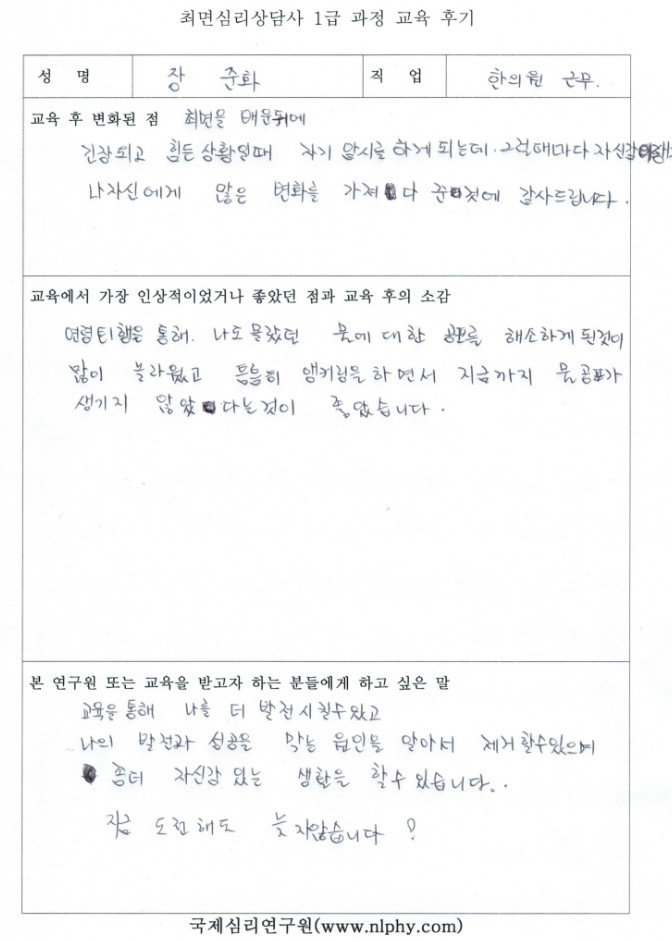 최면심리상담사 1급 과정 교육 후기
성 명 장 준화 직 업 한의원 근무.
교육 후 변화된 점 최면을 배운뒤에
긴장되고 힘든상황일때 자기 암시를 하게 되는데. 그럴때마다 자신감이
나자신에게 많은 변화를 가져다 준것에 감사드립니다.
교육에서 가장 인상적이었거나 좋았던 점과 교육 후의 소감
연령퇴행을 통해. 나도 몰랐던 물에 대한 공포를 해소하게 된것이
많이 놀라웠고 틈틈히 앵커링을 하면서 지금까지 물공포가
생기지 않았다는것이 좋았습니다.
본 연구원 또는 교육을 받고자 하는 분들에게 하고 싶은 말
교육을 통해 나를 더 발전시킬수있고
나의 발전과 성공을 막는 원인을 알아서 제거할수있으며
좀더 자신감 있는 생활을 할수 있습니다..
지금 도전해도 늦지않습니다 !
국제심리연구원(www.nlphy.com)